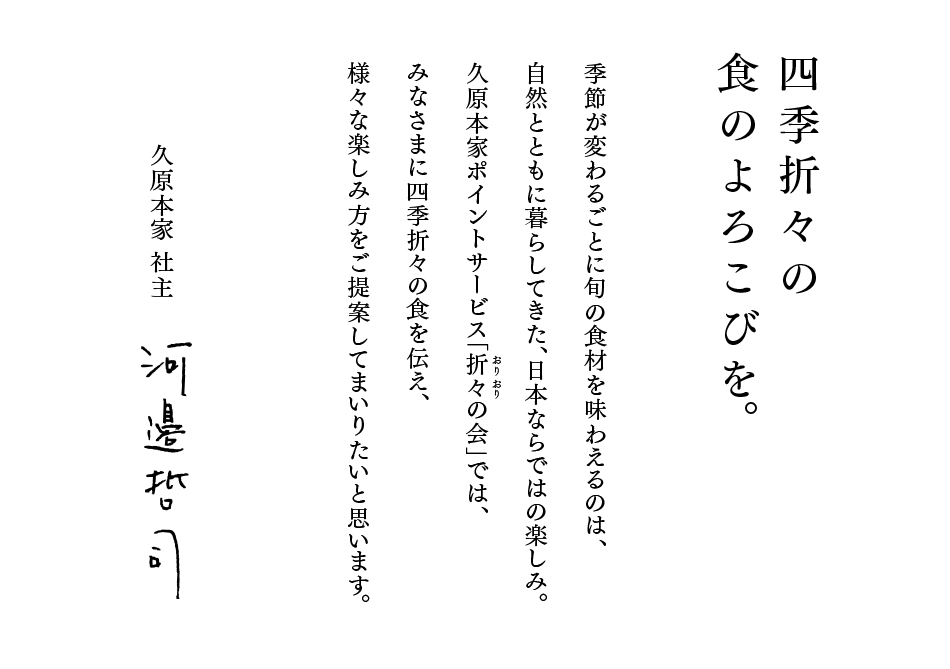 四季折々の
食のよろこびを。
季節が変わるごとに旬の食材を味わえるのは、
自然とともに暮らしてきた、日本ならではの楽しみ。
久原本家ポイントサービス「折々の会」では、
おりおり
みなさまに四季折々の食を伝え、
様々な楽しみ方をご提案してまいりたいと思います。
久原本家 社主
河邉哲司